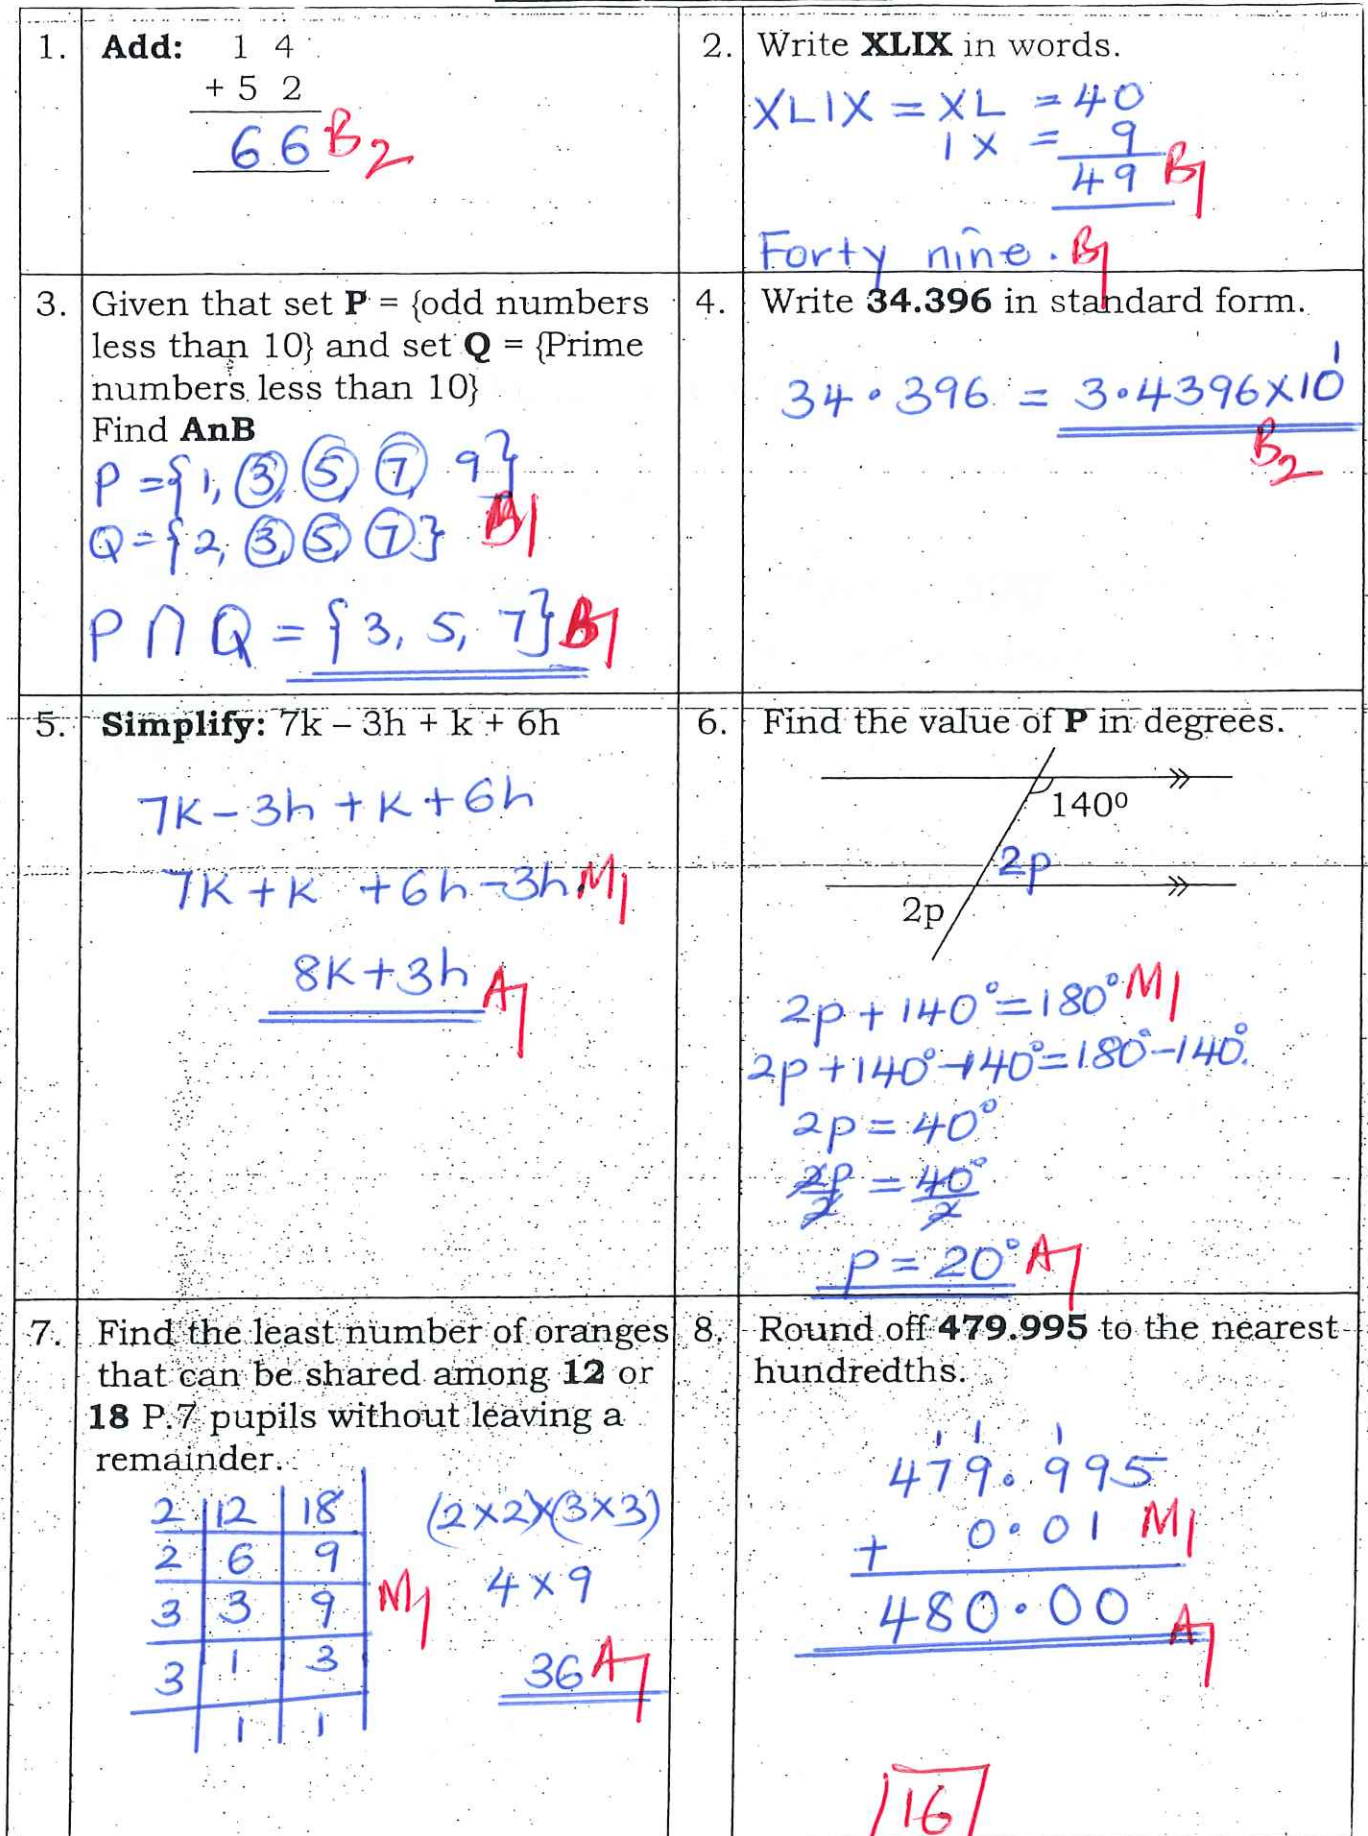 1. Add: 1 4
+ 5 2
6 6 B2
2. Write XLIX in words.
XLIX = XL = 40
IX = 9
49 B1
Forty nine. B1
3. Given that set P = {odd numbers
less than 10} and set Q = {Prime
numbers less than 10}
Find AnB
P = {1, 3, 5, 7, 9}
Q = {2, 3, 5, 7} B1
P ∩ Q = {3, 5, 7} B1
4. Write 34.396 in standard form.
34.396 = 3.4396 x 10¹
B2
5. Simplify: 7k – 3h + k + 6h
7k - 3h + k + 6h
7k + k + 6h - 3h M1
8k + 3h A1
6. Find the value of P in degrees.
140⁰
2p
2p
2p + 140° = 180° M1
2p + 140° - 140° = 180° - 140°.
2p = 40°
2p/2 = 40°/2
p = 20° A1
7. Find the least number of oranges
that can be shared among 12 or
18 P.7 pupils without leaving a
remainder.
2 12 18
2 6 9
3 3 9
3 1 3
1 1
M1
(2x2)x(3x3)
4 x 9
36 A1
8. Round off 479.995 to the nearest
hundredths.
1 1 1
479.995
+ 0.01 M1
480.00 A1
16